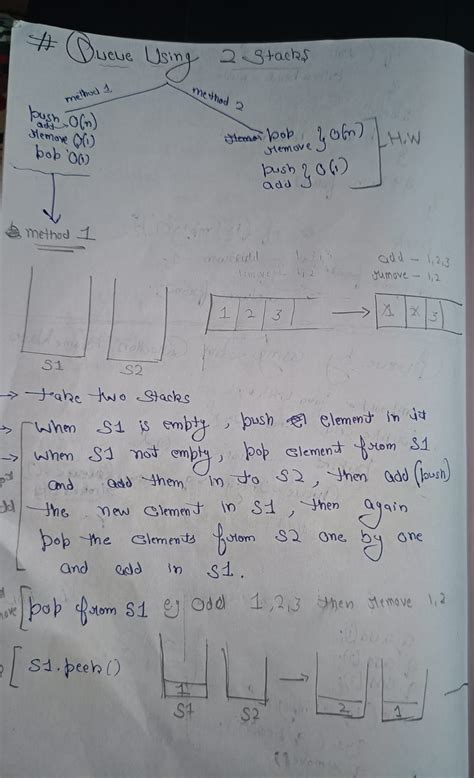 # Queue Using 2 Stacks
method 1
method 2
push O(n)
add
remove O(1)
pop O(1)
pop
remove } O(n)
push
add } O(1)
H.W
method 1
add - 1,2,3
remove - 1,2
1 2 3
1 2 3
S1 S2
→ Take two Stacks
→ When S1 is empty, push element in it
→ When S1 not empty, pop element from S1
and add them in to S2, then add (push)
the new element in S1, then again
pop the elements from S2 one by one
and add in S1.
pop from S1 eg add 1,2,3 then remove 1,2
S1.peek()
1 2 1
S1 S2